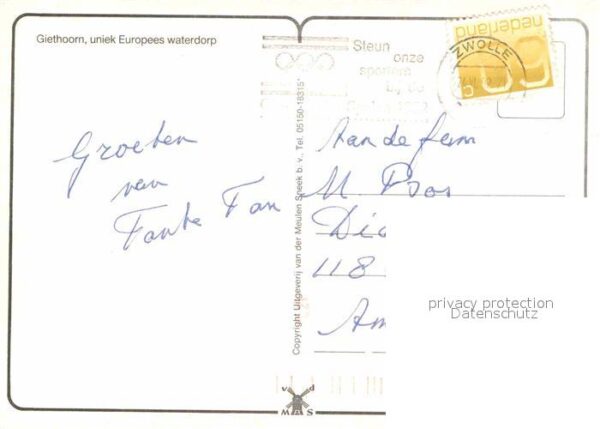 Giethoorn, uniek Europees waterdorp
Steun
onze
sporters
ZWOLLE
nederland
60 c
Groeten
van
Tante Fan
Aan de fam
M. Bos
Di
118
Am
Copyright Uitgeverij van der Meulen Sneek b. v., Tel. 05150-18315*
v d
MÀS
privacy protection
Datenschutz